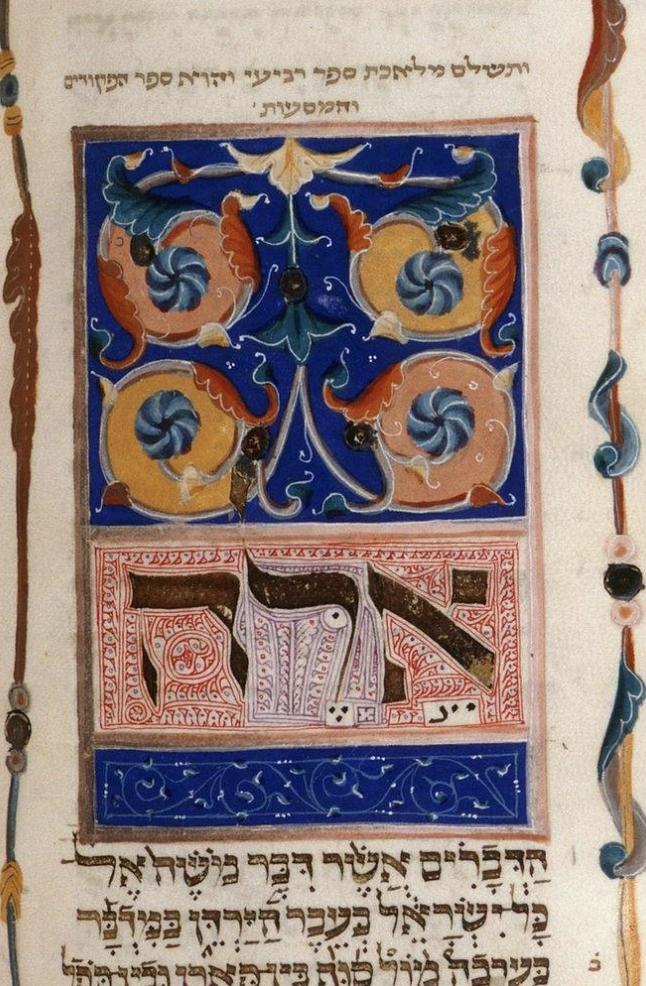 ותשלם מלאכת ספר רביעי והוא ספר הפקודים
והמסעות
אֵלֶּה
הַדְּבָרִים אֲשֶׁר דִּבֶּר מֹשֶׁה אֶל
כָּל יִשְׂרָאֵל בְּעֵבֶר הַיַּרְדֵּן בַּמִּדְבָּר
בערבה מול סוף בין פארן ובין תפל